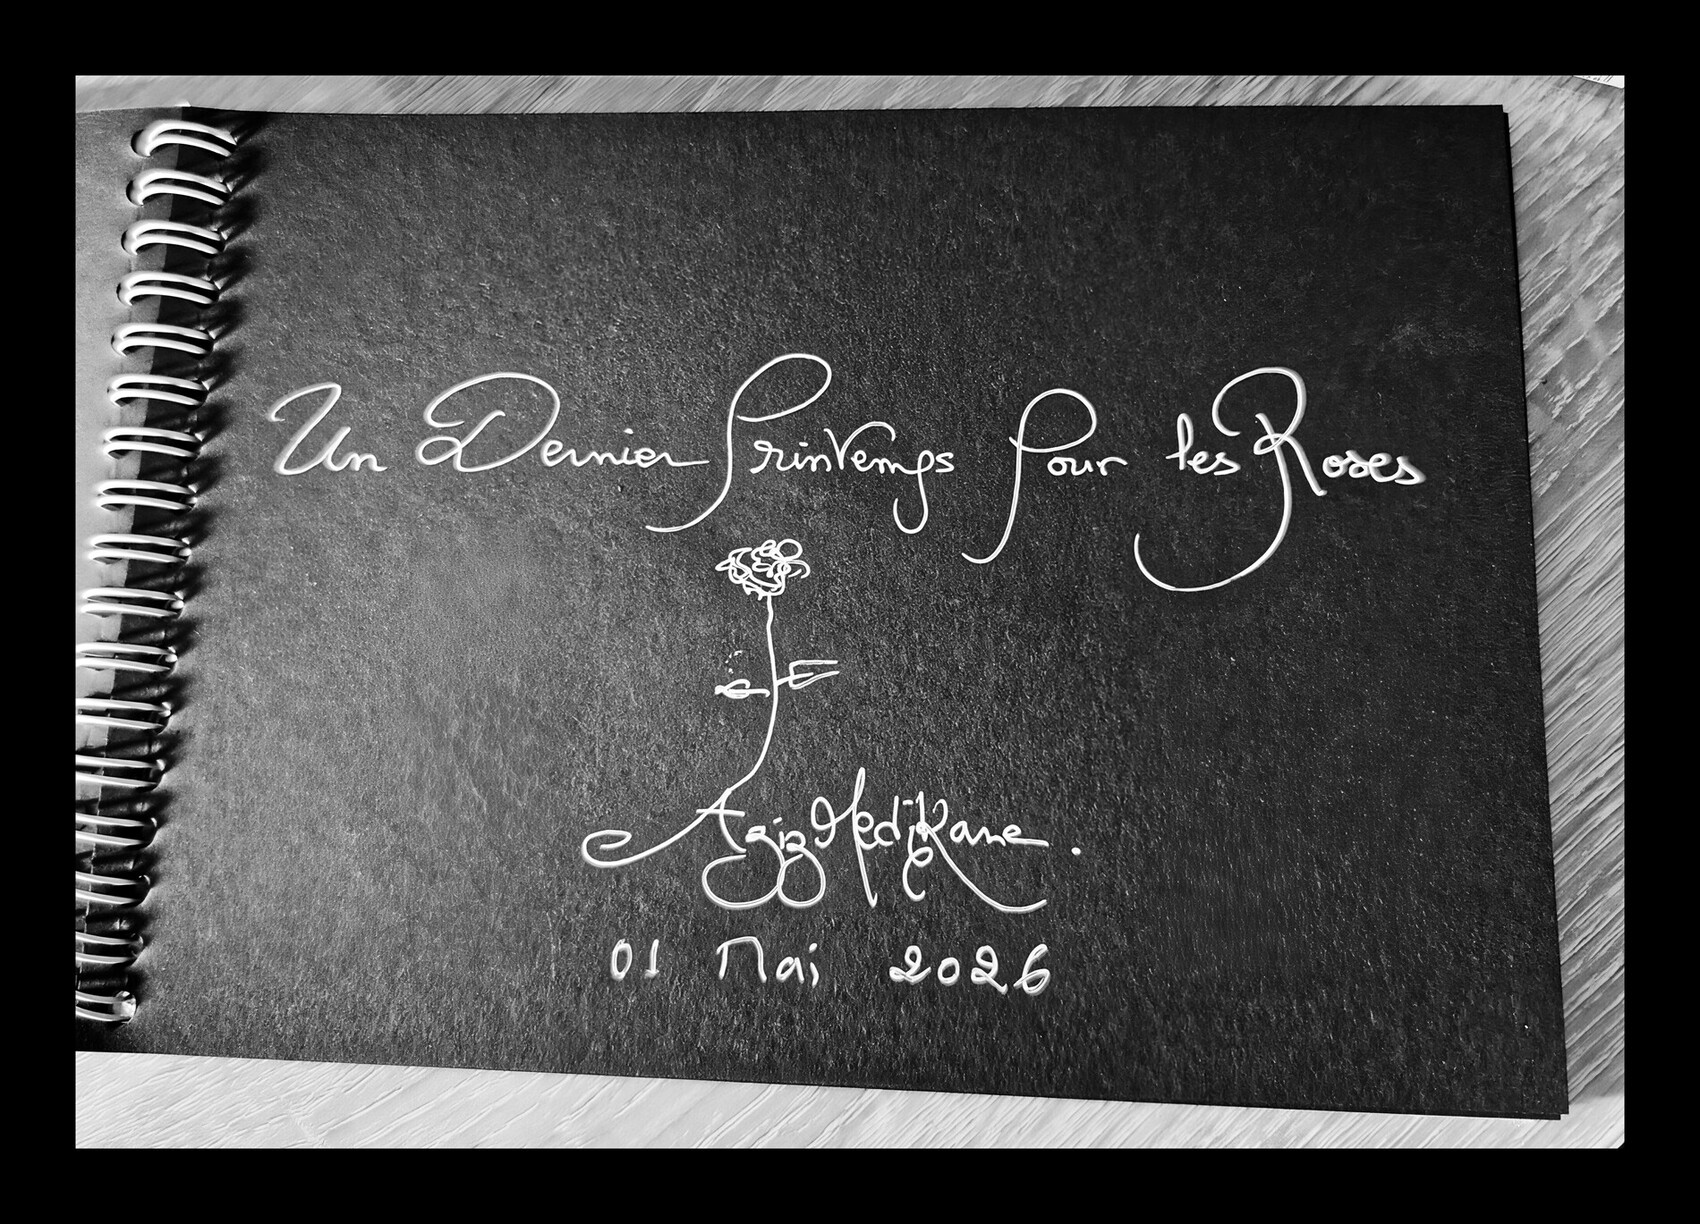 Un Dernier Printemps Pour les Roses
Aziz Medjkane.
01 Mai 2026